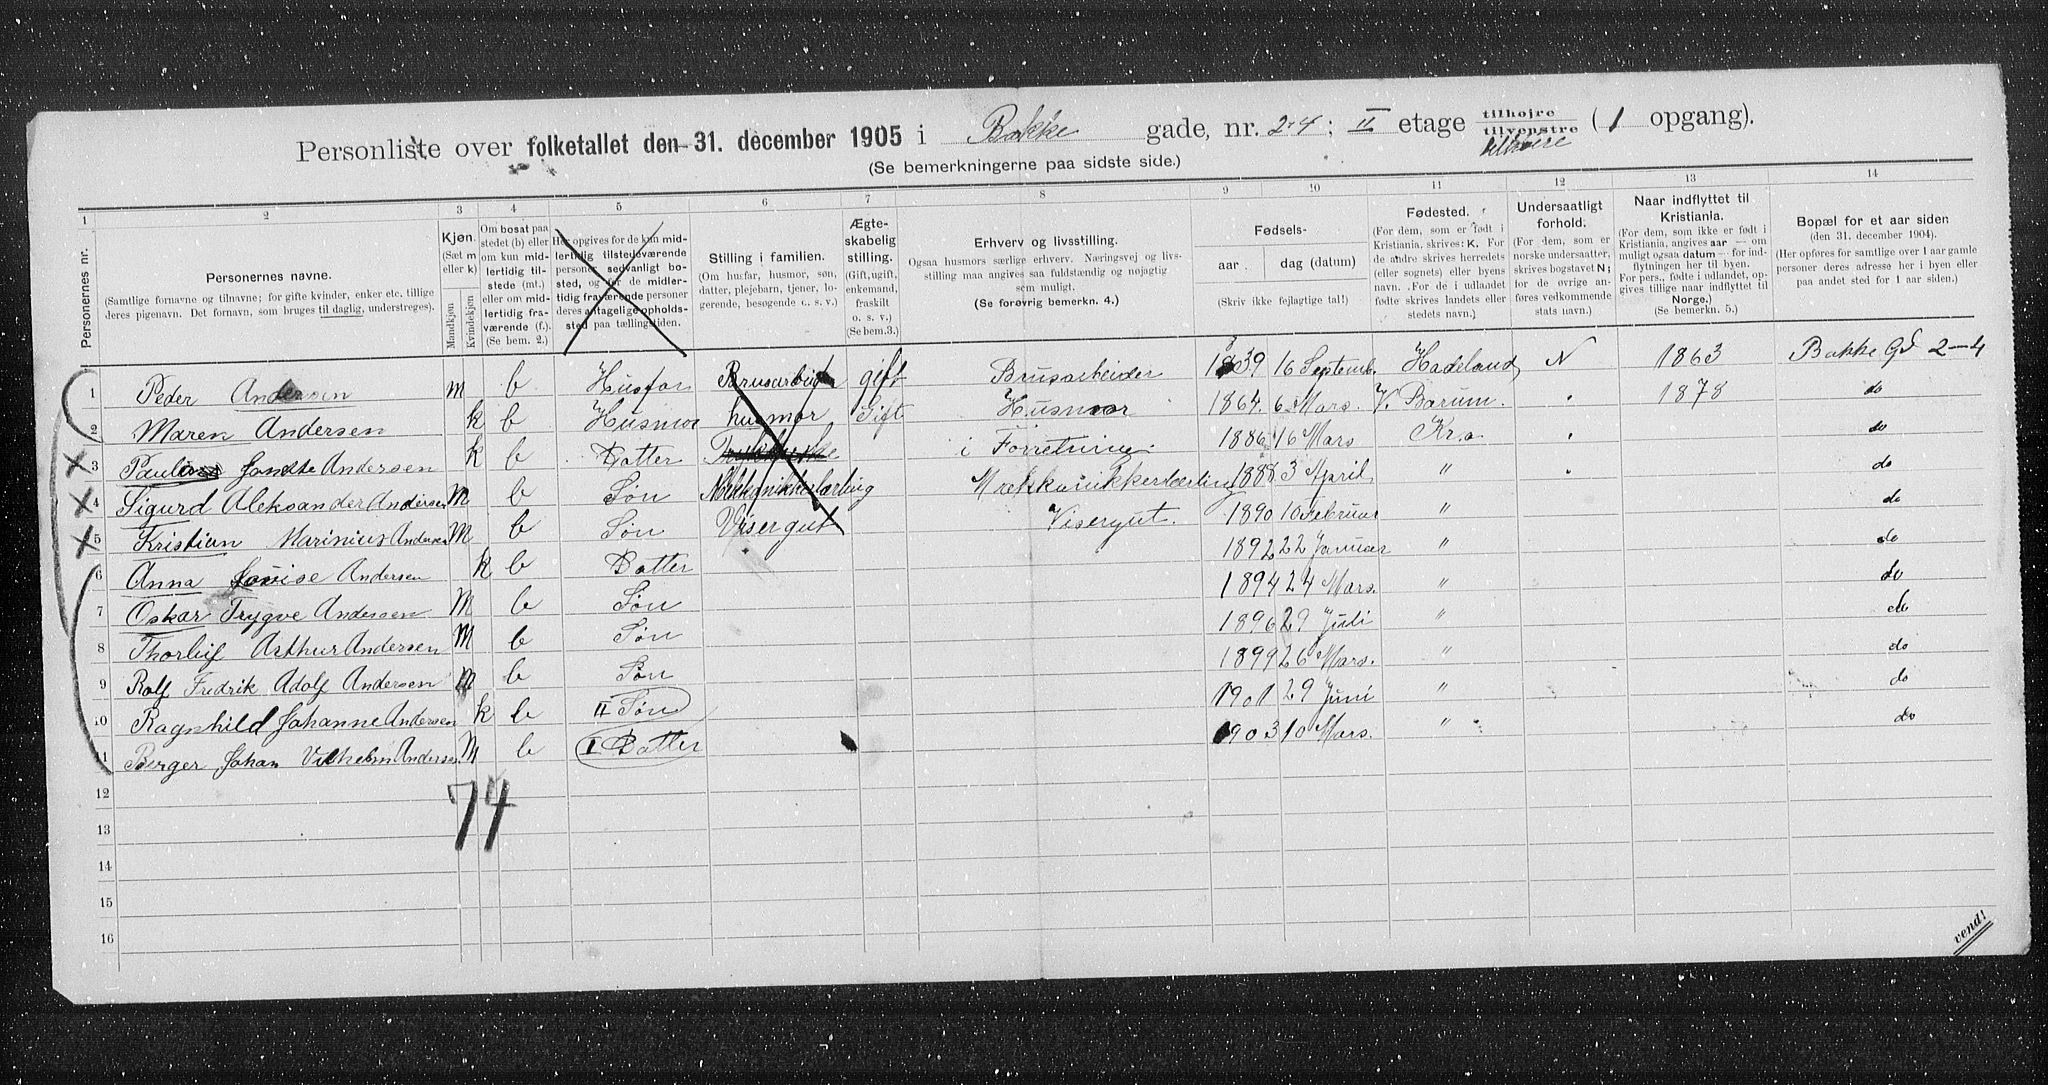 Personliste over folketallet den 31. december 1905 i Bakke gade, nr. 2-4; II etage tilhøjre tilvenstre (1 opgang).
tilhøire
(Se bemerkningerne paa sidste side.)
1 2 3 4 5 6 7 8 9 10 11 12 13 14
Personernes nr.
Personernes navne.
(Samtlige fornavne og tilnavne; for gifte kvinder, enker etc. tillige deres pigenavn. Det fornavn, som bruges til daglig, understreges).
Kjøn.
(Sæt m eller k)
Mandkjøn
Kvindekjøn
Om bosat paa stedet (b) eller om kun midlertidig tilstede (mt.) eller om midlertidig fraværende (f.)
(Se bem. 2.)
Her opgives for de kun midlertidig tilstedeværende personer sedvanlig bosted, og for de midlertidig fraværende personer deres antagelige opholdssted paa tællingstiden.
Stilling i familien.
(Om husfar, husmor, søn, datter, plejebarn, tjener, logerende, besøgende o. s. v.)
Ægteskabelig stilling.
(Gift, ugift, enkemand, fraskilt o. s. v.)
(Se bem. 3.)
Erhverv og livsstilling.
Ogsaa husmors særlige erhverv. Næringsvej og livsstilling maa angives saa fuldstændig og nøjagtig som muligt.
(Se forøvrig bemerkn. 4.)
Fødsels-
aar dag (datum)
(Skriv ikke fejlagtige tal!)
Fødested.
(For dem, som er født i Kristiania, skrives: K. For de andre skrives herredets (eller sognets) eller byens navn. For de i udlandet fødte skrives landets eller stedets navn.)
Undersaatligt forhold.
(For dem, som er norske undersaatter, skrives bogstavet N; for de øvrige anføres vedkommende stats navn.)
Naar indflyttet til Kristiania.
(For dem, som ikke er født i Kristiania, angives aar — om muligt ogsaa datum — for indflytningen her til byen. For pers., fødte i udlandet, opgives tillige naar indflyttet til Norge.)
(Se bemerkn. 5.)
Bopæl for et aar siden
(den 31. december 1904).
(Her opføres for samtlige over 1 aar gamle personer deres adresse her i byen eller paa andet sted for 1 aar siden.)
1 Peder Andersen m b Husfar Brusarbeider gift Brusarbeider 1839 16 Septemb. Hadeland N 1863 Bakke Gd 2-4
2 Maren Andersen k b Husmor husmor Gift Husmor 1864. 6 Mars. V. Bærum. " 1878 do
3 Andersen k b Datter i Forretning. 1886 16 Mars Kr.a. " do
4 Sigurd Aleksander Andersen M b Søn Mekkanikkerlærling Mekkanikkerlærling 1888 3 April " " do
5 Kristian Marinius Andersen M b Søn Visergut Visergut. 1890 10 Februar " do
6 Anna Louise Andersen k b Datter 1892 22 Januar " do
7 Oskar Trygve Andersen M b Søn 1894 24 Mars. " do
8 Thorleif Arthur Andersen M b Søn 1896 29 Juli " do
9 Rolf Fredrik Adolf Andersen M b Søn 1899 26 Mars. " do
10 Ragnhild Johanne Andersen k b II Søn 1901 29 Juni " do
11 Birger Johan Vilhelm Andersen M b I Datter 1903 10 Mars. " do
12
13
14
15
16
74
vend!